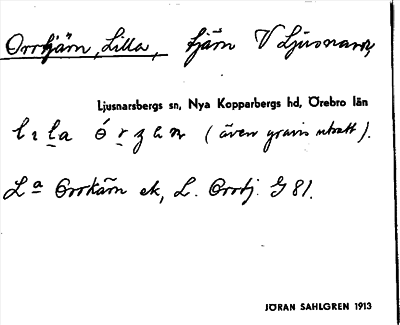 Orrtjärn, Lilla, tjärn V Ljusnaren,
Ljusnarsbergs sn, Nya Kopparbergs hd, Örebro län
(även gravis uttalt).
La Orrkärn ek, L. Orrtj. G 81.
JÖRAN SAHLGREN 1913